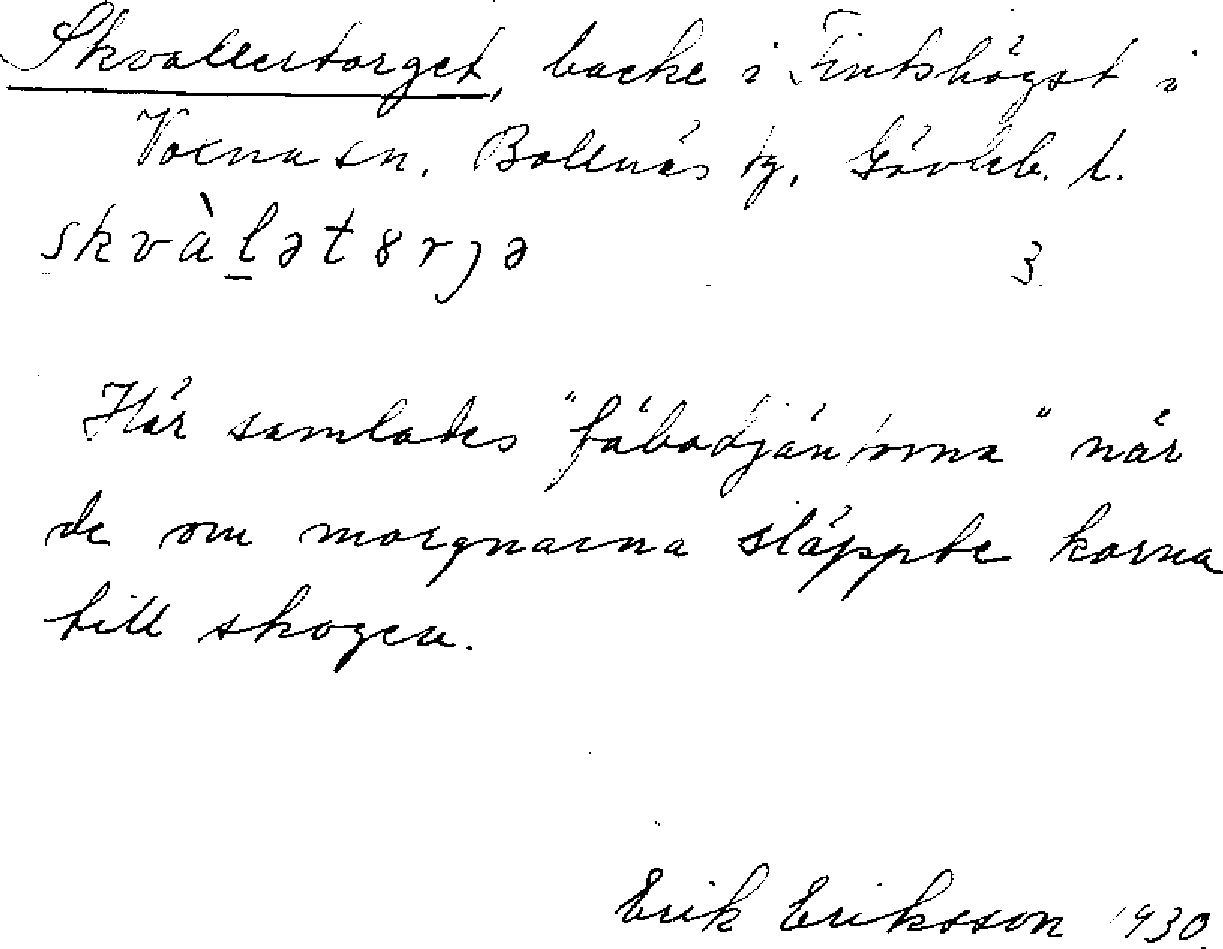 Skvallertorget, backe i Finkshögst i
Voxna sn. Bollnäs tg, Gävleb. l.
skvàlətȣrjə 3
Här samlades "fäbodjäntorna" när
de om morgnarna släppte korna
till skogen.
Erik Eriksson 1930.